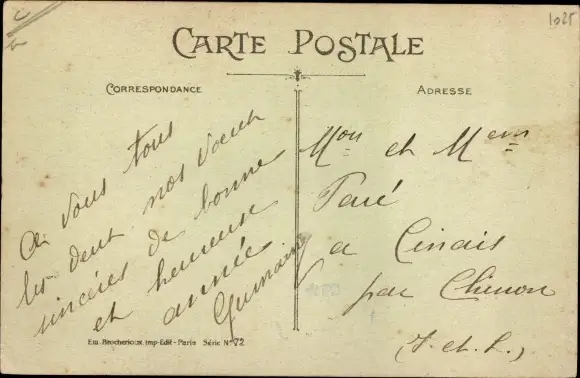 1025
CARTE POSTALE
CORRESPONDANCE
A vous tous
les deux nos vœux
sincères de bonne
et heureuse
année
Germain
Em. Brocherioux. Imp-Edit - Paris Série N° 72
ADRESSE
Mon et Mem
Paré
a Cinais
par Chinon
(I. et. L.)